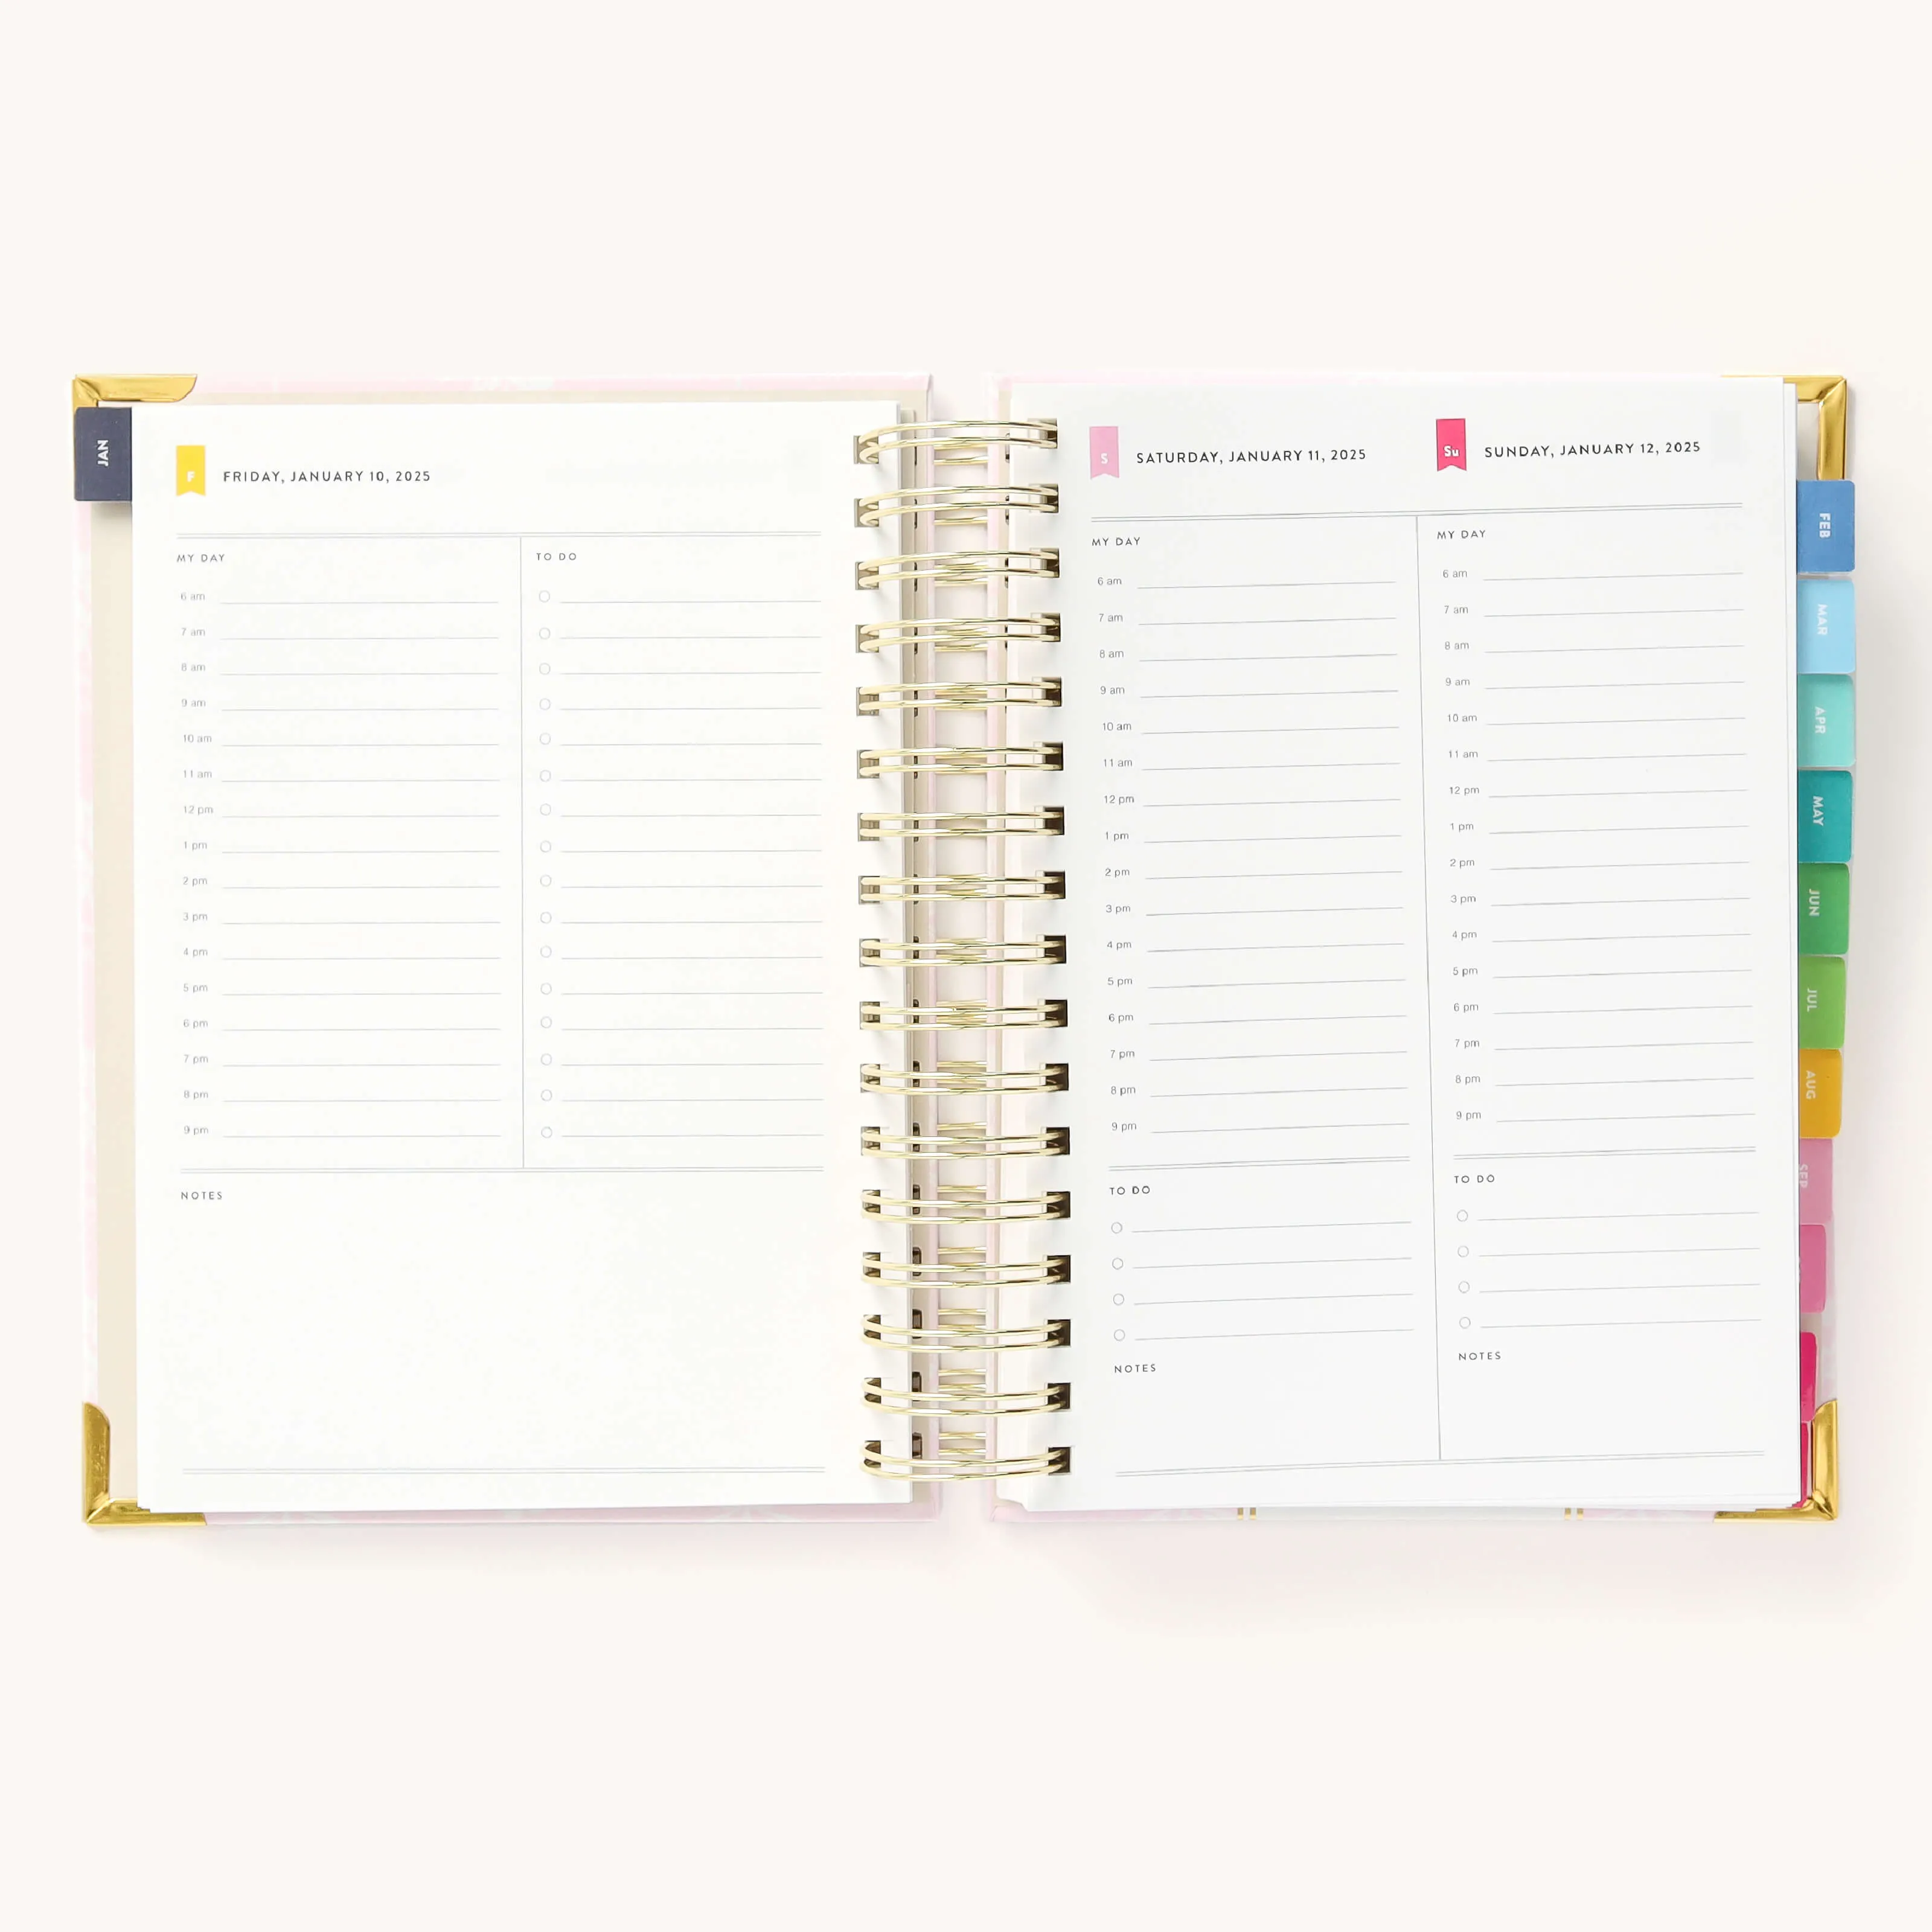 JAN
F
FRIDAY, JANUARY 10, 2025
MY DAY
6 am
7 am
8 am
9 am
10 am
11 am
12 pm
1 pm
2 pm
3 pm
4 pm
5 pm
6 pm
7 pm
8 pm
9 pm
TO DO
NOTES
S
SATURDAY, JANUARY 11, 2025
MY DAY
6 am
7 am
8 am
9 am
10 am
11 am
12 pm
1 pm
2 pm
3 pm
4 pm
5 pm
6 pm
7 pm
8 pm
9 pm
TO DO
NOTES
Su
SUNDAY, JANUARY 12, 2025
MY DAY
6 am
7 am
8 am
9 am
10 am
11 am
12 pm
1 pm
2 pm
3 pm
4 pm
5 pm
6 pm
7 pm
8 pm
9 pm
TO DO
NOTES
FEB
MAR
APR
MAY
JUN
JUL
AUG
SEP